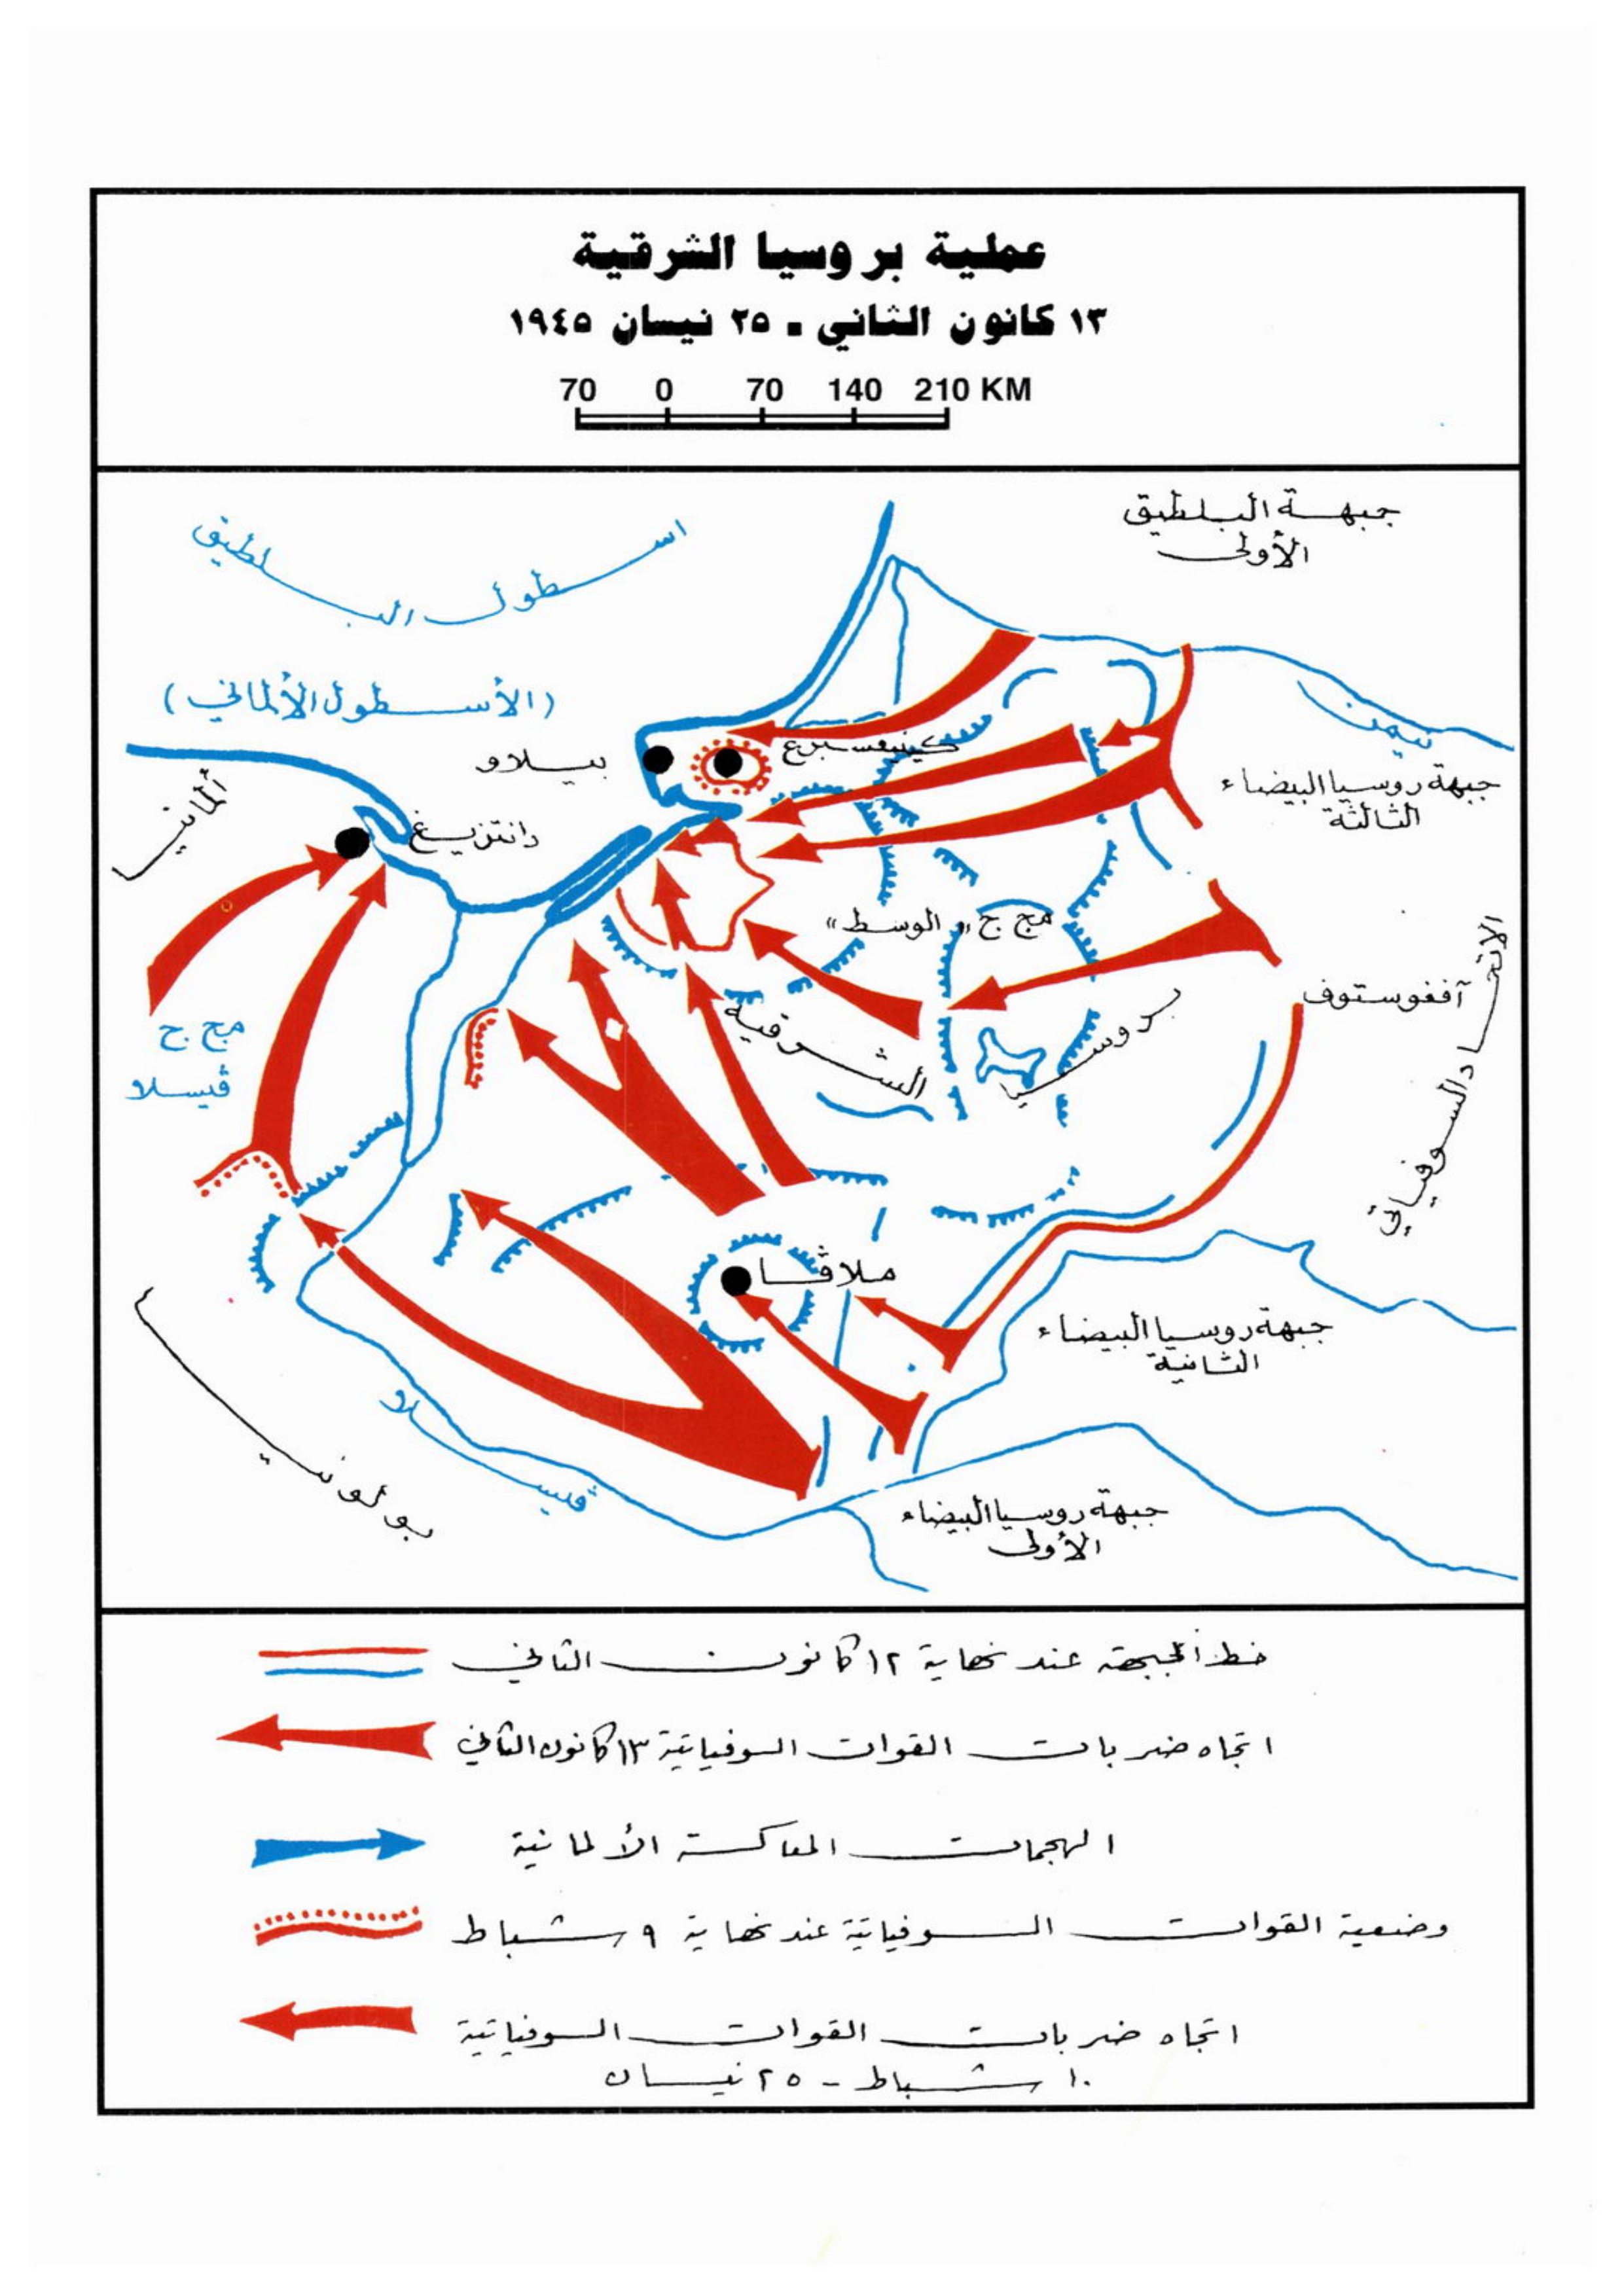 عملية بروسيا الشرقية
١٣ كانون الثاني - ٢٥ نيسان ١٩٤٥
70 0 70 140 210 KM
جبهة البلطيق
الأولى
اسطول البلطيق
(الأسطول الألماني)
نيمن
كينيغسبرغ
بيلاو
جبهة روسيا البيضاء
الثالثة
ألمانيا
دانتزيغ
مج ج «الوسط»
الاتحاد السوفياتي
آفغوستوف
بروسيا
الشرقية
مج ج
ڤيسلا
ملاڤا
جبهة روسيا البيضاء
الثانية
بولونيا
ڤيسلا
جبهة روسيا البيضاء
الأولى
خط الجبهة عند نهاية ١٢ كانون الثاني
اتجاه ضربات القوات السوفياتية ١٣ كانون الثاني
الهجمات المعاكسة الألمانية
وضعية القوات السوفياتية عند نهاية ٩ شباط
اتجاه ضربات القوات السوفياتية
١٠ شباط - ٢٥ نيسان